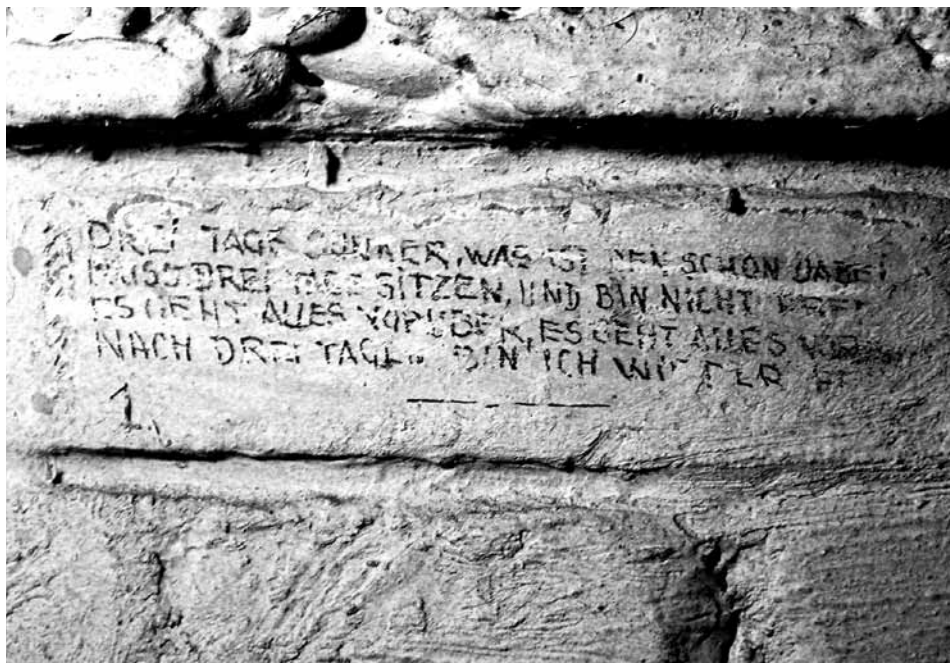 DREI TAGE BUNKER, WAS IST DEN SCHON DABEI
MUSS DREI TAGE SITZEN, UND BIN NICHT FREI
ES GEHT ALLES VORÜBER, ES GEHT ALLES
NACH DREI TAGEN BIN ICH WIETER
1.